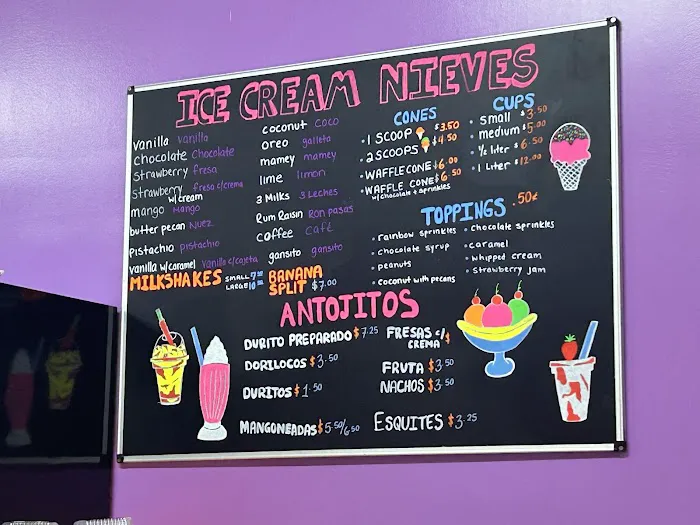 ICE CREAM NIEVES
vanilla vanilla
chocolate chocolate
strawberry fresa
strawberry w/cream fresa c/crema
mango mango
butter pecan nuez
pistachio pistachio
vanilla w/caramel vanilla c/cajeta
coconut coco
oreo galleta
mamey mamey
lime limon
3 Milks 3 Leches
Rum Raisin Ron pasas
coffee café
gansito gansito
CONES
1 SCOOP $3.50
2 SCOOPS $4.50
WAFFLE CONE $6.00
WAFFLE CONE $6.50
w/chocolate + sprinkles
CUPS
small $3.50
medium $5.00
½ liter $6.50
1 liter $12.00
TOPPINGS .50¢
rainbow sprinkles
chocolate syrup
peanuts
coconut with pecans
chocolate sprinkles
caramel
whipped cream
strawberry jam
MILKSHAKES SMALL 7.00
LARGE 10.00
BANANA
SPLIT $7.00
ANTOJITOS
DURITO PREPARADO $7.25
DORILOCOS $3.50
DURITOS $1.50
MANGONEADAS $5.50/6.50
FRESAS c/
CREMA
FRUTA $3.50
NACHOS $3.50
ESQUITES $3.25